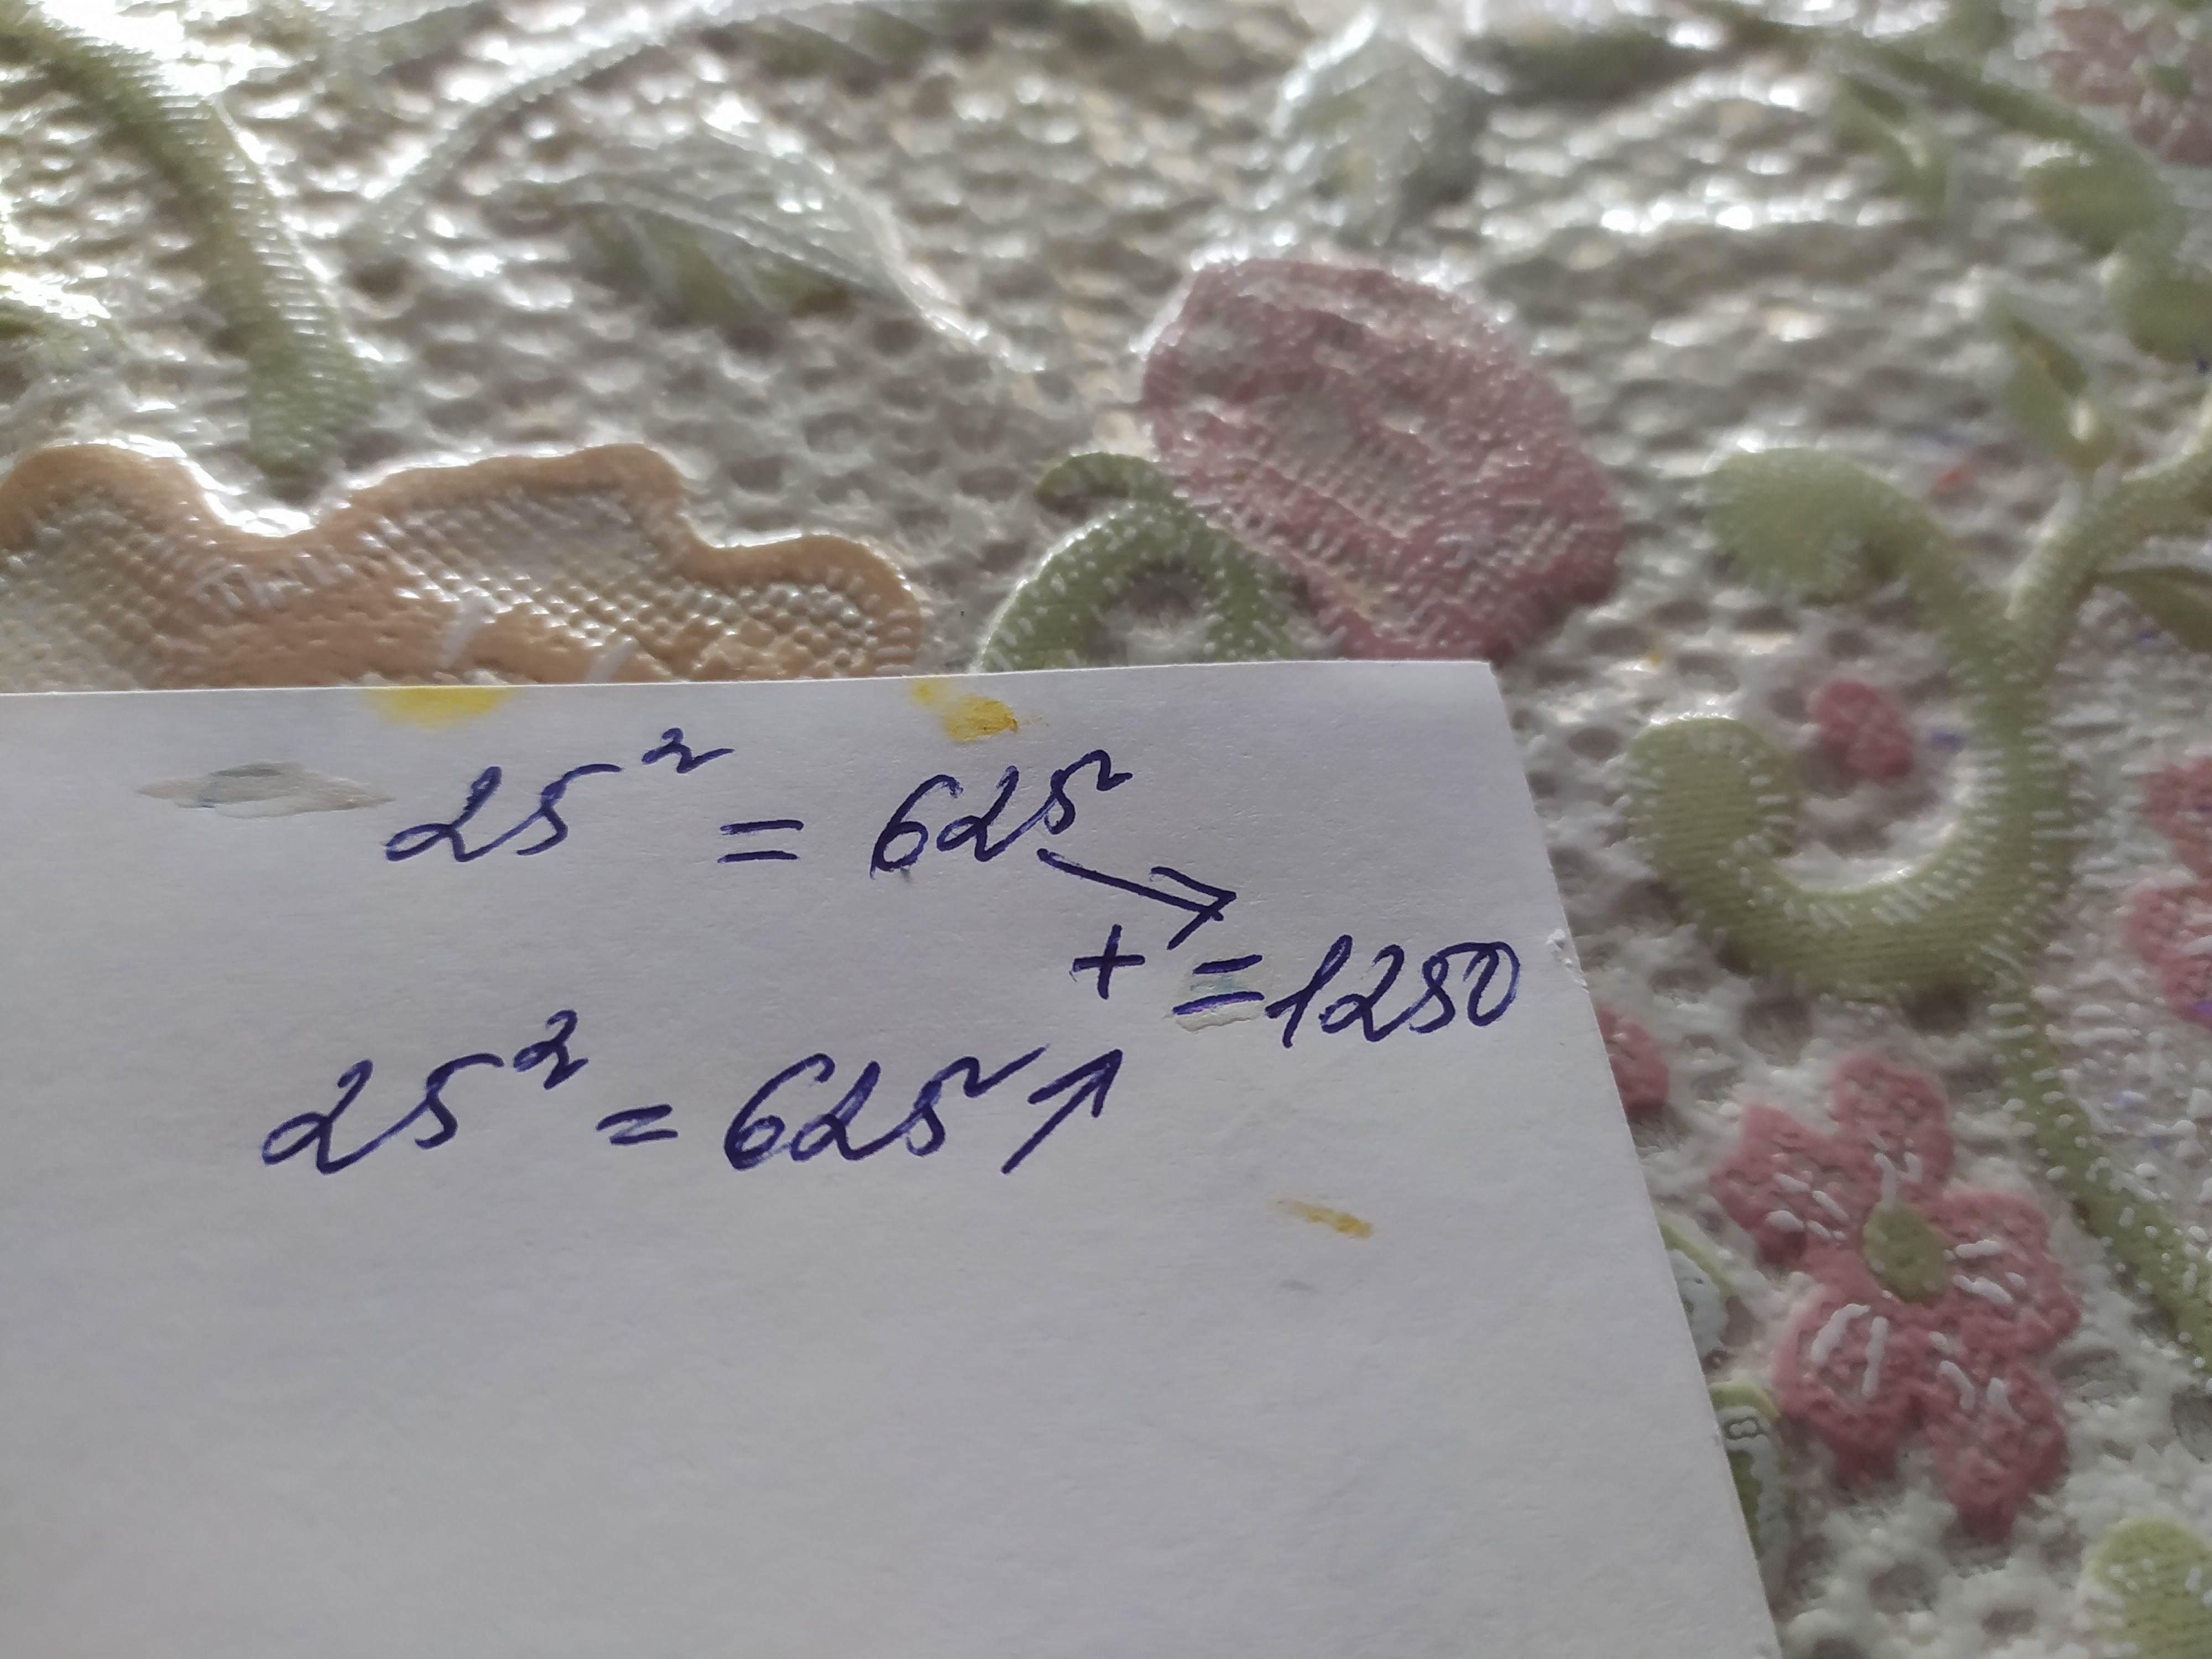 25² = 625
+ = 1250
25² = 625